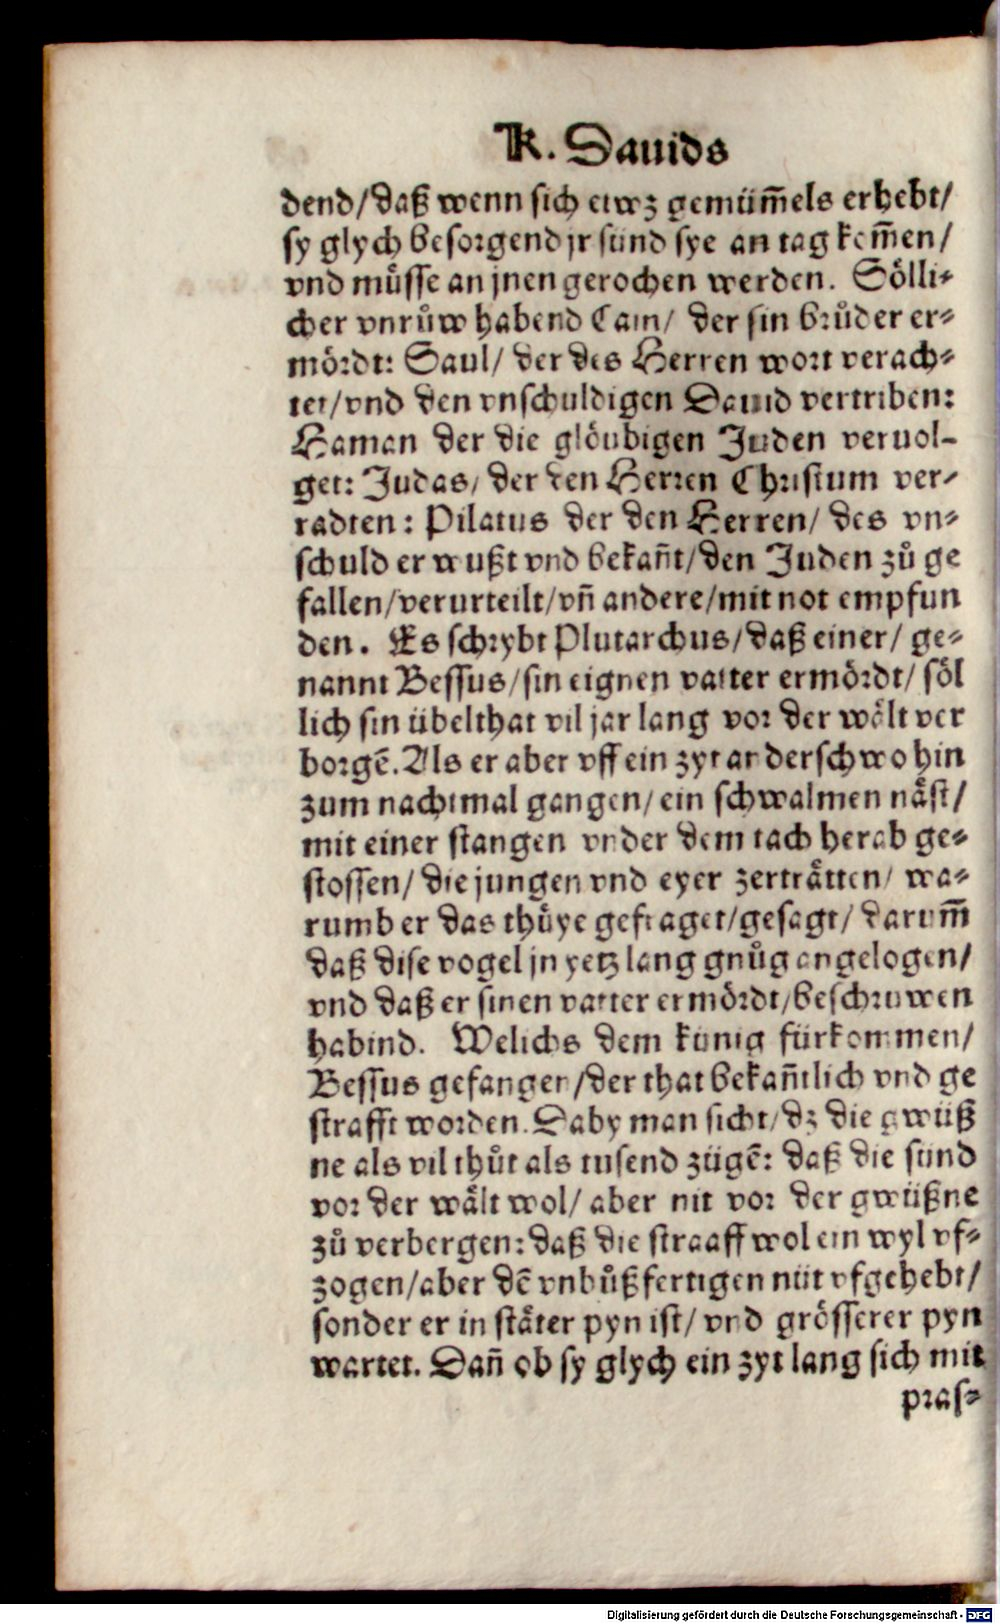 K. Dauids
dend/daß wenn sich etwz gemüm̄els erhebt/
sy glych besorgend jr sünd sye an tag kom̄en/
vnd müͤsse an jnen gerochen werden. Söͤlli⸗
cher vnruͦw habend Cain/ der sin bruͦder er⸗
mördt: Saul/ der des Herren wort verach⸗
tet/vnd den vnschuldigen Dauid vertriben:
Haman der die glöubigen Juden veruol-
get: Judas/ der den Herren Christum ver⸗
radten: Pilatus der den Herren/ des vn⸗
schuld er wußt vnd bekañt/den Juden zuͦ ge
fallen/verurteilt/vñ andere/mit not empfun
den. Es schrybt Plutarchus/daß einer/ ge⸗
nannt Bessus/sin eignen vatter ermördt/ söl
lich sin übelthat vil jar lang vor der wält ver
borgẽ. Als er aber vff ein zyt anderschwohin
zum nachtmal gangen/ ein schwalmen näst/
mit einer stangen vnder dem tach herab ge⸗
stossen/ die jungen vnd eyer zerträtten/ wa⸗
rumb er das thüͤye gefraget/gesagt/ darum̄
daß dise vogel jn yetz lang gnuͦg angelogen/
vnd daß er sinen vatter ermördt/beschruwen
habind. Welichs dem künig fürkommen/
Bessus gefangen/der that bekañtlich vnd ge
strafft worden. Daby man sicht/dz die gwüß
ne als vil thuͦt als tusend zügẽ: daß die sünd
vor der wält wol/ aber nit vor der gwüßne
zuͦ verbergen: daß die straaff wol ein wyl vf⸗
zogen/aber dẽ vnbuͦßfertigen nüt vfgehebt/
sonder er in stäter pyn ist/ vnd grösserer pyn
wartet. Dañ ob sy glych ein zyt lang sich mit
pras⸗
Digitalisierung gefördert durch die Deutsche Forschungsgemeinschaft - DFG